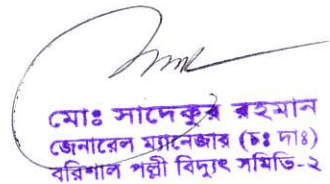 মোঃ সাদেকুর রহমান
জেনারেল ম্যানেজার (চঃ দাঃ)
বরিশাল পল্লী বিদ্যুৎ সমিতি-২